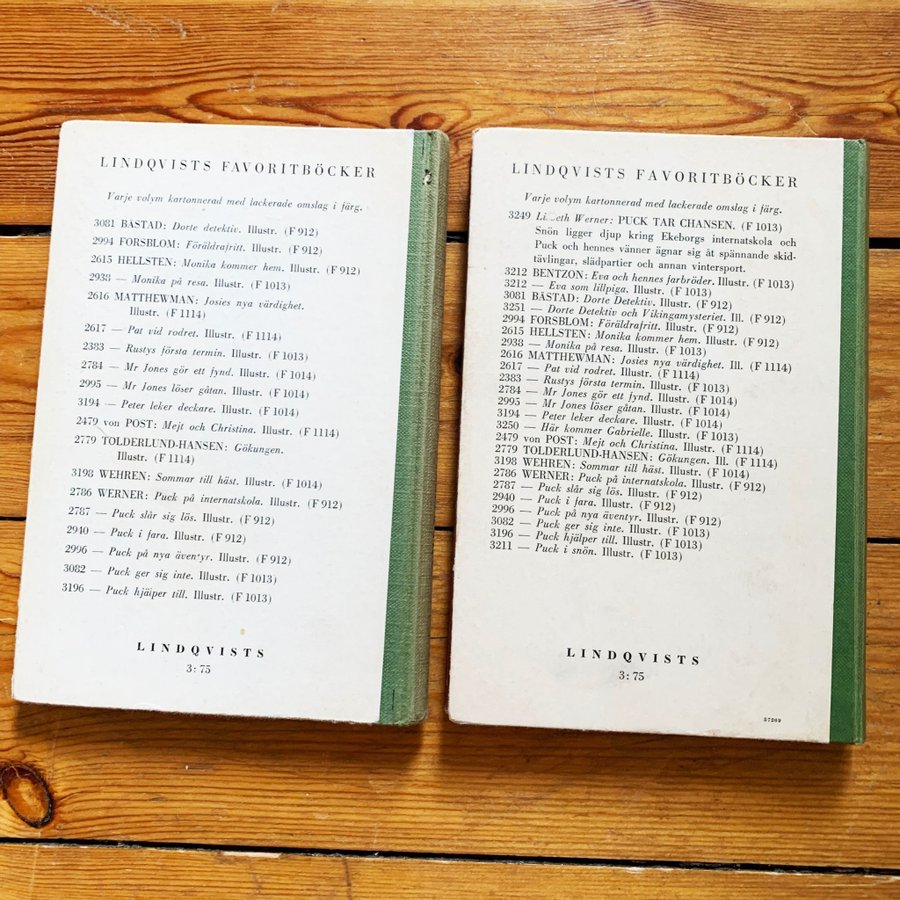 LINDQVISTS FAVORITBÖCKER
Varje volym kartonnerad med lackerade omslag i färg.
3081 BÅSTAD: Dorte detektiv. Illustr. (F 912)
2994 FORSBLOM: Föräldrafritt. Illustr. (F 912)
2615 HELLSTEN: Monika kommer hem. Illustr. (F 912)
2938 — Monika på resa. Illustr. (F 1013)
2616 MATTHEWMAN: Josies nya värdighet.
Illustr. (F 1114)
2617 — Pat vid rodret. Illustr. (F 1114)
2383 — Rustys första termin. Illustr. (F 1013)
2784 — Mr Jones gör ett fynd. Illustr. (F 1014)
2995 — Mr Jones löser gåtan. Illustr. (F 1014)
3194 — Peter leker deckare. Illustr. (F 1014)
2479 von POST: Mejt och Christina. Illustr. (F 1114)
2779 TOLDERLUND-HANSEN: Gökungen.
Illustr. (F 1114)
3198 WEHREN: Sommar till häst. Illustr. (F 1014)
2786 WERNER: Puck på internatskola. Illustr. (F 912)
2787 — Puck slår sig lös. Illustr. (F 912)
2940 — Puck i fara. Illustr. (F 912)
2996 — Puck på nya äventyr. Illustr. (F 912)
3082 — Puck ger sig inte. Illustr. (F 1013)
3196 — Puck hjälper till. Illustr. (F 1013)
LINDQVISTS
3: 75
LINDQVISTS FAVORITBÖCKER
Varje volym kartonnerad med lackerade omslag i färg.
3249 Werner: PUCK TAR CHANSEN. (F 1013)
Snön ligger djup kring Ekeborgs internatskola och
Puck och hennes vänner ägnar sig åt spännande skid-
tävlingar, slädpartier och annan vintersport.
3212 BENTZON: Eva och hennes farbröder. Illustr. (F 1013)
3212 — Eva som lillpiga. Illustr. (F 1013)
3081 BÅSTAD: Dorte Detektiv. Illustr. (F 912)
3251 — Dorte Detektiv och Vikingamysteriet. Ill. (F 912)
2994 FORSBLOM: Föräldrafritt. Illustr. (F 912)
2615 HELLSTEN: Monika kommer hem. Illustr. (F 912)
2938 — Monika på resa. Illustr. (F 1013)
2616 MATTHEWMAN: Josies nya värdighet. Ill. (F 1114)
2617 — Pat vid rodret. Illustr. (F 1114)
2383 — Rustys första termin. Illustr. (F 1013)
2784 — Mr Jones gör ett fynd. Illustr. (F 1014)
2995 — Mr Jones löser gåtan. Illustr. (F 1014)
3194 — Peter leker deckare. Illustr. (F 1014)
3250 — Här kommer Gabrielle. Illustr. (F 1013)
2479 von POST: Mejt och Christina. Illustr. (F 1114)
2779 TOLDERLUND-HANSEN: Gökungen. Ill. (F 1114)
3198 WEHREN: Sommar till häst. Illustr. (F 1014)
2786 WERNER: Puck på internatskola. Illustr. (F 912)
2787 — Puck slår sig lös. Illustr. (F 912)
2940 — Puck i fara. Illustr. (F 912)
2996 — Puck på nya äventyr. Illustr. (F 912)
3082 — Puck ger sig inte. Illustr. (F 1013)
3196 — Puck hjälper till. Illustr. (F 1013)
3211 — Puck i snön. Illustr. (F 1013)
LINDQVISTS
3: 75